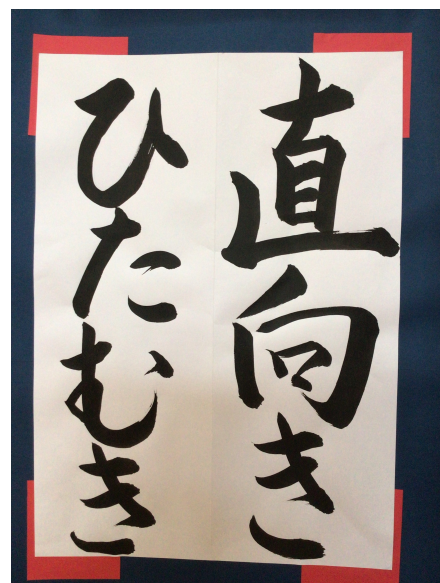 直向き
ひたむき